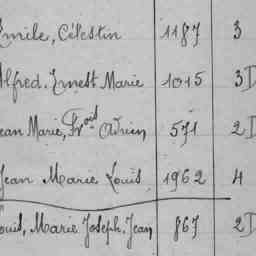 Emile, Célestin 1187 3
Alfred, Ernest Marie 1015 3D
Jean Marie, Frçois Adrien 571 2D
Jean Marie Louis 1962 4
Louis, Marie Joseph, Jean 867 2D